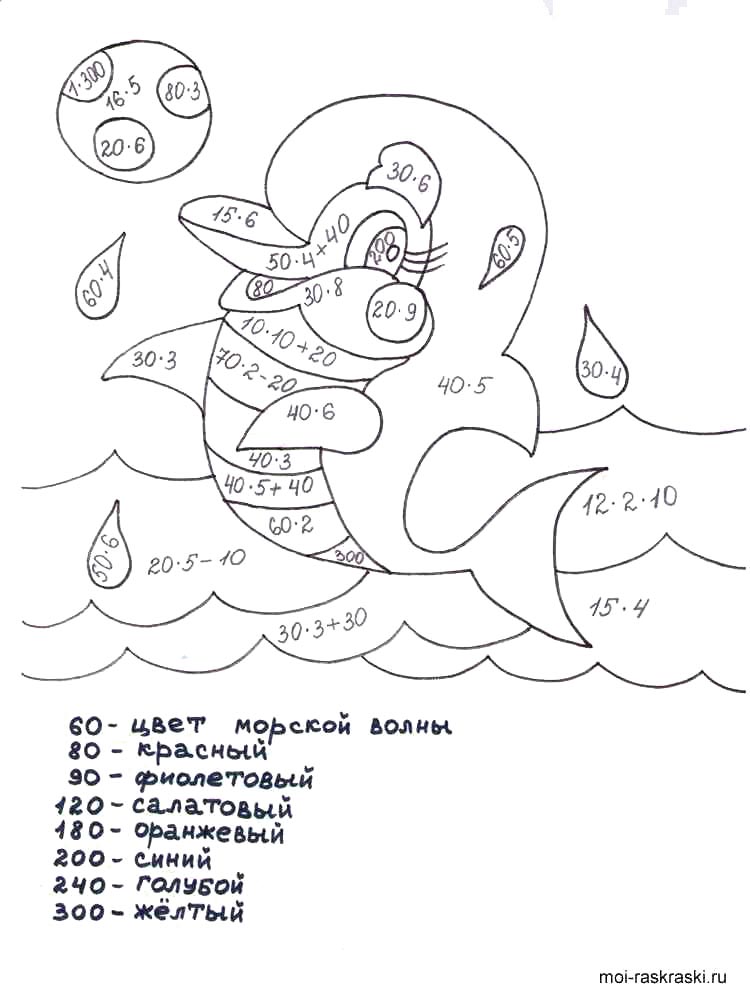 1·300
16·5
80·3
20·6
30·6
15·6
50·4+40
200
60·5
60·4
80
30·8
20·9
10·10+20
30·3
70·2-20
30·4
40·5
40·6
40·3
40·5+40
12·2·10
60·2
50·6
20·5-10
300
15·4
30·3+30
60 - цвет морской волны
80 - красный
90 - фиолетовый
120 - салатовый
180 - оранжевый
200 - синий
240 - голубой
300 - жёлтый
moi-raskraski.ru